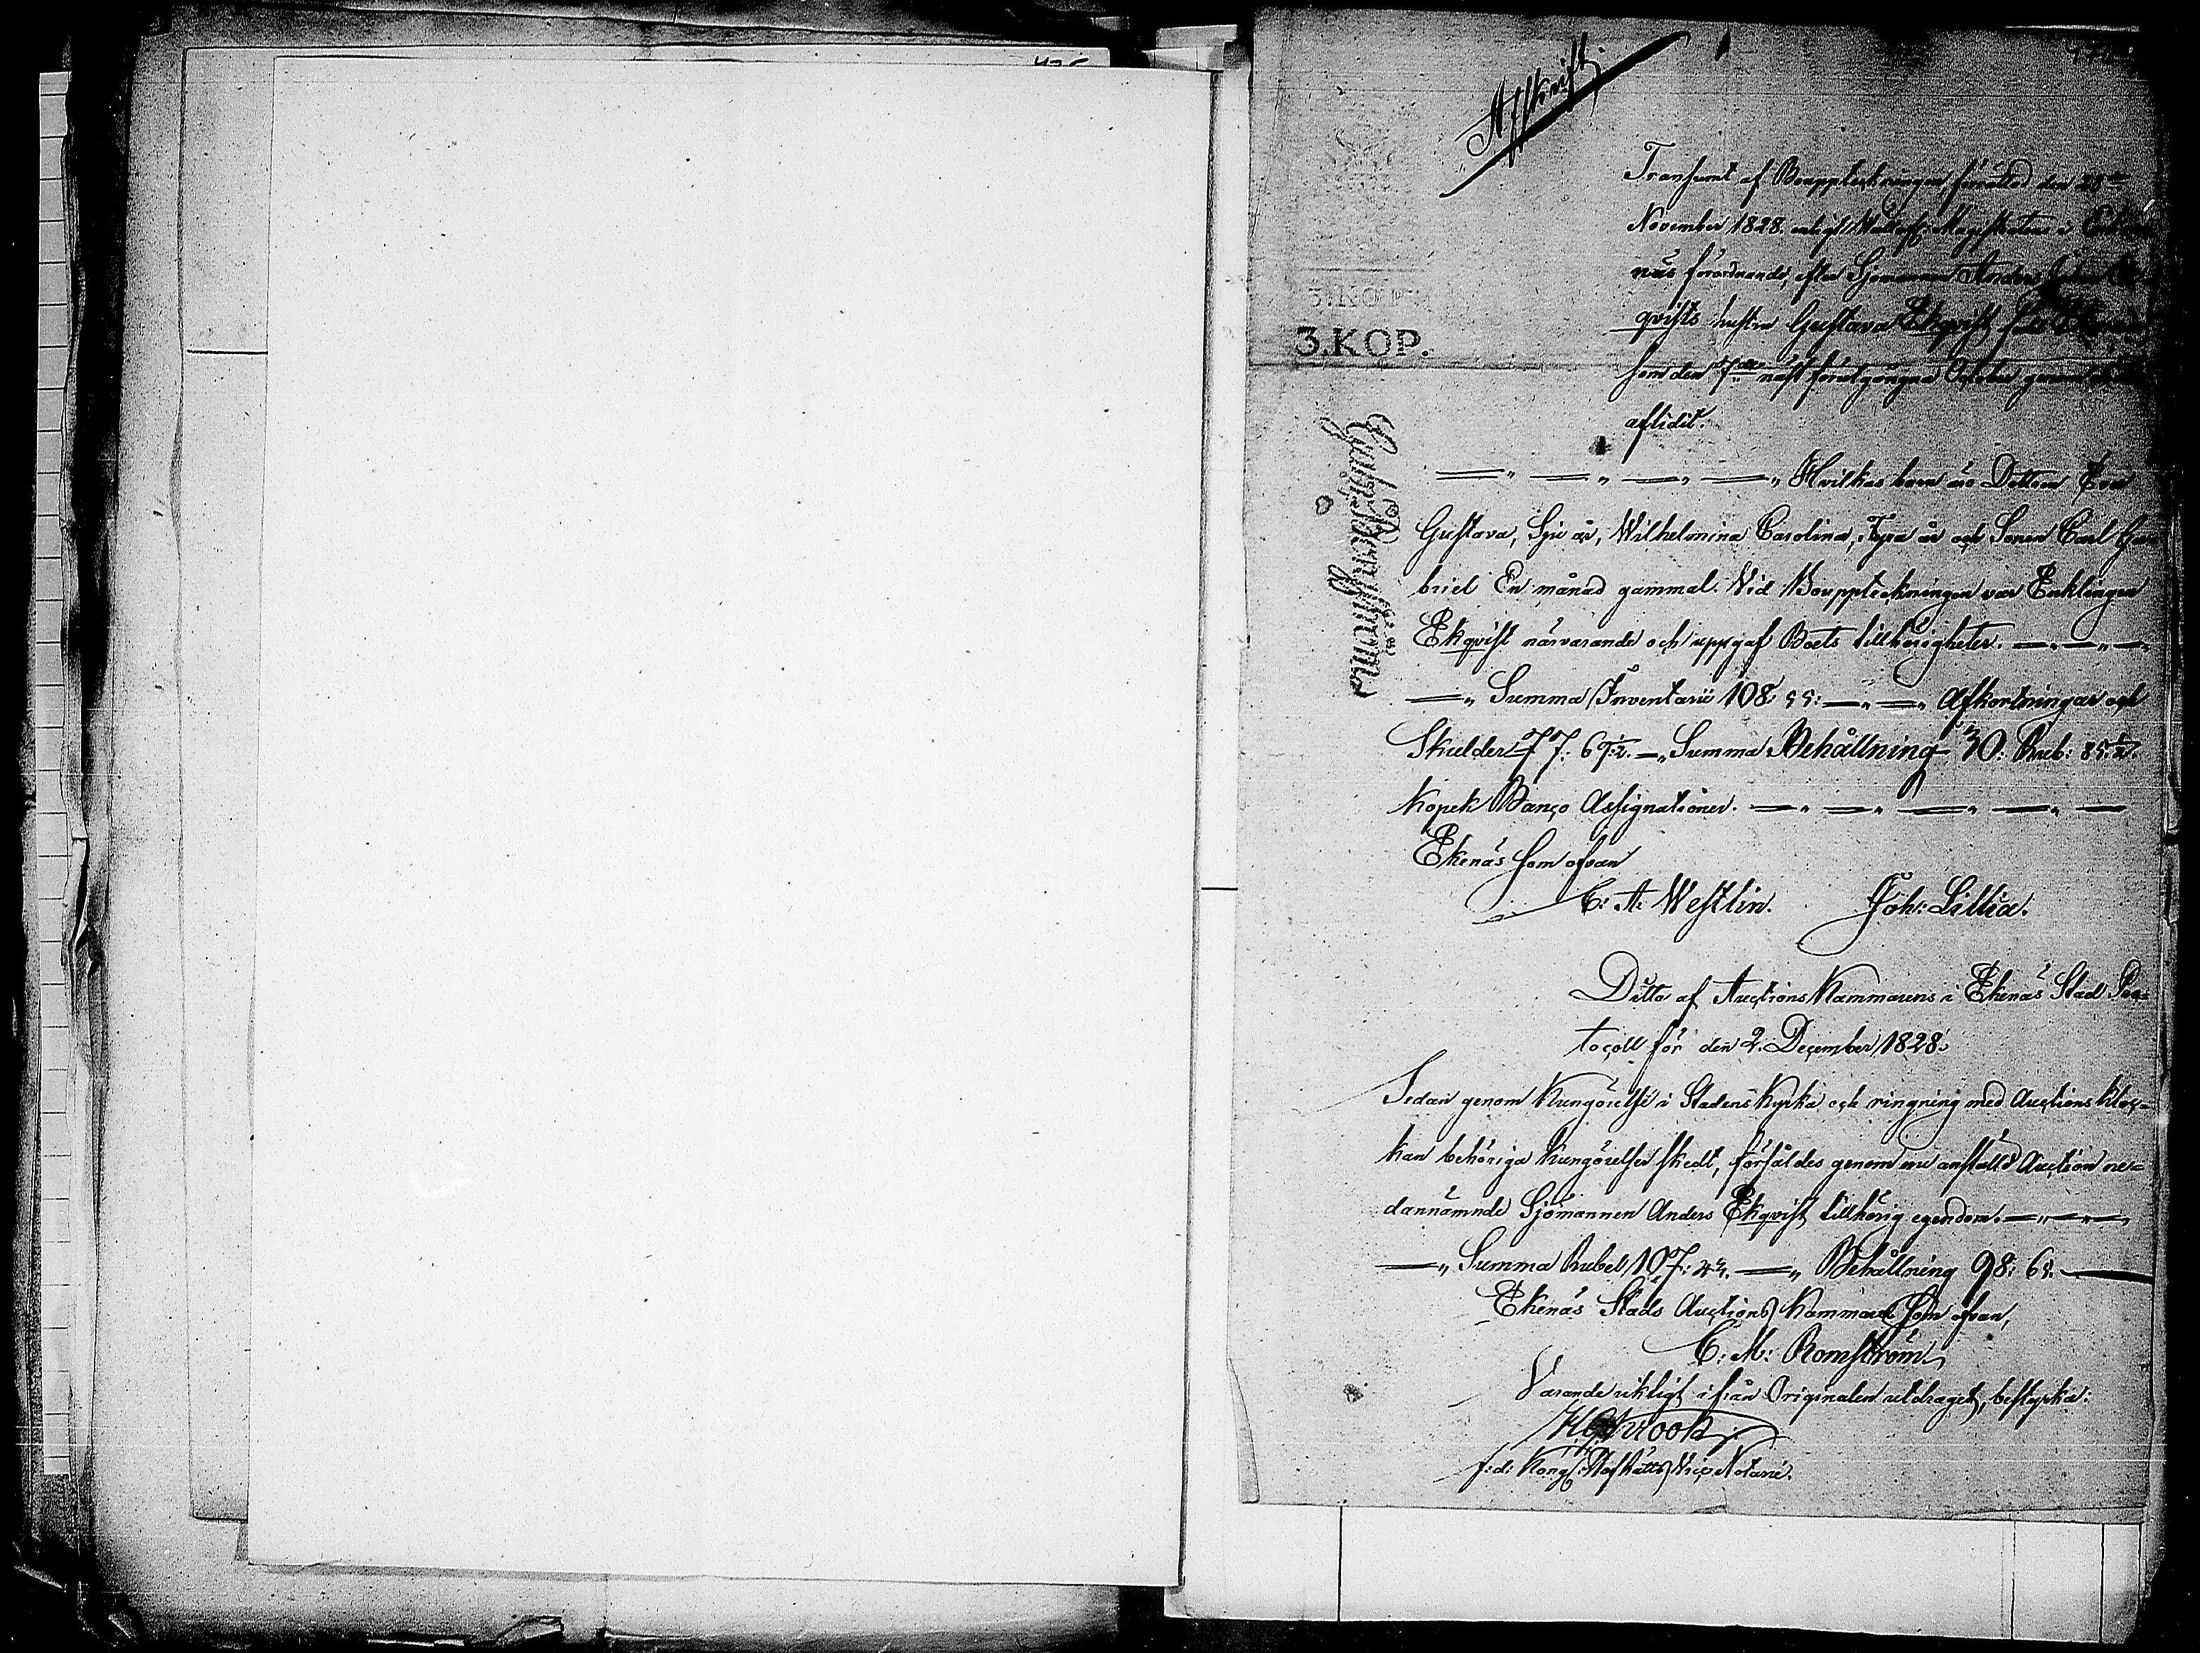 Afskrift
Transumt af Bouppteckningen förrättad den 28de
November 1828. enligt Wällofl: Magistratens i Eke-
näs förordnande, efter Sjömannen Anders
qvists hustru Gustava Ekqvist född
3.KOP.
som den 7de näst förutgången October genom döden
aflidit.
—„ —„ —„ —„ Hvilkas barn äro Dottren Eva
Gustava, Sju år, Wilhelmina Carolina, Fyra år och Sonen Carl Ga-
briel En månad gammal. Vid Bouppteckningen var Enklingen
Ekqvist närvarande och uppgaf Boets tillhörigheter. —„—„—
—„ Summa Inventarii 108: 55: —„—„ Afkortningar och
Skulder 77: 69½. —„ Summa Behållning 30. Rub: 85½.
Kopek Banco Assignationer. —„ —„ —„ —„ —
Ekenäs som ofvan
C: A: Westlin. Joh: Lillia.
Ditto af Auctions Kammarens i Ekenäs Stad Pro-
tocoll för den 2. December 1828.
Sedan genom Kungörelse i Stadens Kyrka och ringning med Auctions kloc-
kan behöriga kungörelser skedt, försåldes genom nu anställd Auction ne-
dannämnde Sjömannen Anders Ekqvist tillhörig egendom. —„—„—
—„ Summa Rubel 107: 45. —„ Behållning 98: 65. —
Ekenäs Stads Auctions Kammare som ofvan,
C: M: Romström
Varande riktigt ifrån Originalen utdraget, bestyrka:
f: d: Kongl: Hofrätts Vice Notarie.